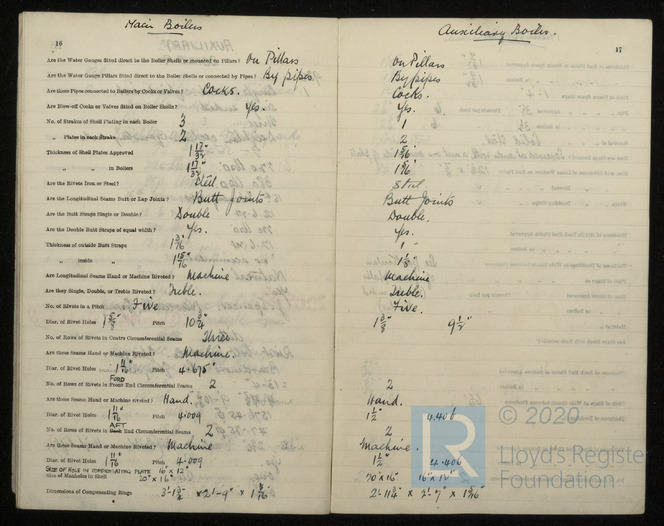 Main Boilers
16
Are the Water Gauges fitted direct to the Boiler Shells or mounted on Pillars? On Pillars
Are the Water Gauge Pillars fitted direct to the Boiler Shells or connected by Pipes? By pipes
Are these Pipes connected to Boilers by Cocks or Valves? Cocks.
Are Blow-off Cocks or Valves fitted on Boiler Shells? Yes.
No. of Strakes of Shell Plating in each Boiler 3
„ Plates in each Strake 2
Thickness of Shell Plates Approved 1 17/32"
„ „ in Boilers 1 17/32"
Are the Rivets Iron or Steel? Steel
Are the Longitudinal Seams Butt or Lap Joints? Butt Joints
Are the Butt Straps Single or Double? Double
Are the Double Butt Straps of equal width? Yes.
Thickness of outside Butt Straps
„ inside „
Are Longitudinal Seams Hand or Machine Riveted? Machine
Are they Single, Double, or Treble Riveted? Treble.
No. of Rivets in a Pitch Five
Diar. of Rivet Holes Pitch 10 3/4"
No. of Rows of Rivets in Centre Circumferential Seams Three
Are these Seams Hand or Machine Riveted? Machine.
Diar. of Rivet Holes 1 11/16" Pitch 4.675"
FORD
No. of Rows of Rivets in Front End Circumferential Seams 2
Are these Seams Hand or Machine Riveted? Hand.
Diar. of Rivet Holes 1 11/16" Pitch 4.009
AFT
No. of Rows of Rivets in Back End Circumferential Seams 2
Are these Seams Hand or Machine Riveted? Machine
Diar. of Rivet Holes 1 11/16 Pitch 4.009
SIZE OF HOLE IN COMPENSATING PLATE 16" x 12"
Size of Manholes in Shell 20" x 16"
Dimensions of Compensating Rings 3'-1 3/4" x 2'-9" x
Auxiliary Boiler.
17
On Pillars
By pipes
Cocks.
Yes.
1
2
1 5/16"
Steel
Butt Joints
Double.
Yes.
1"
Machine
Treble.
Five.
9 1/2"
2
Hand.
1 1/2" 4.406
2
Machine.
1 1/2" 4.406
20" x 16"
© 2020
LR
Lloyd's Register
Foundation